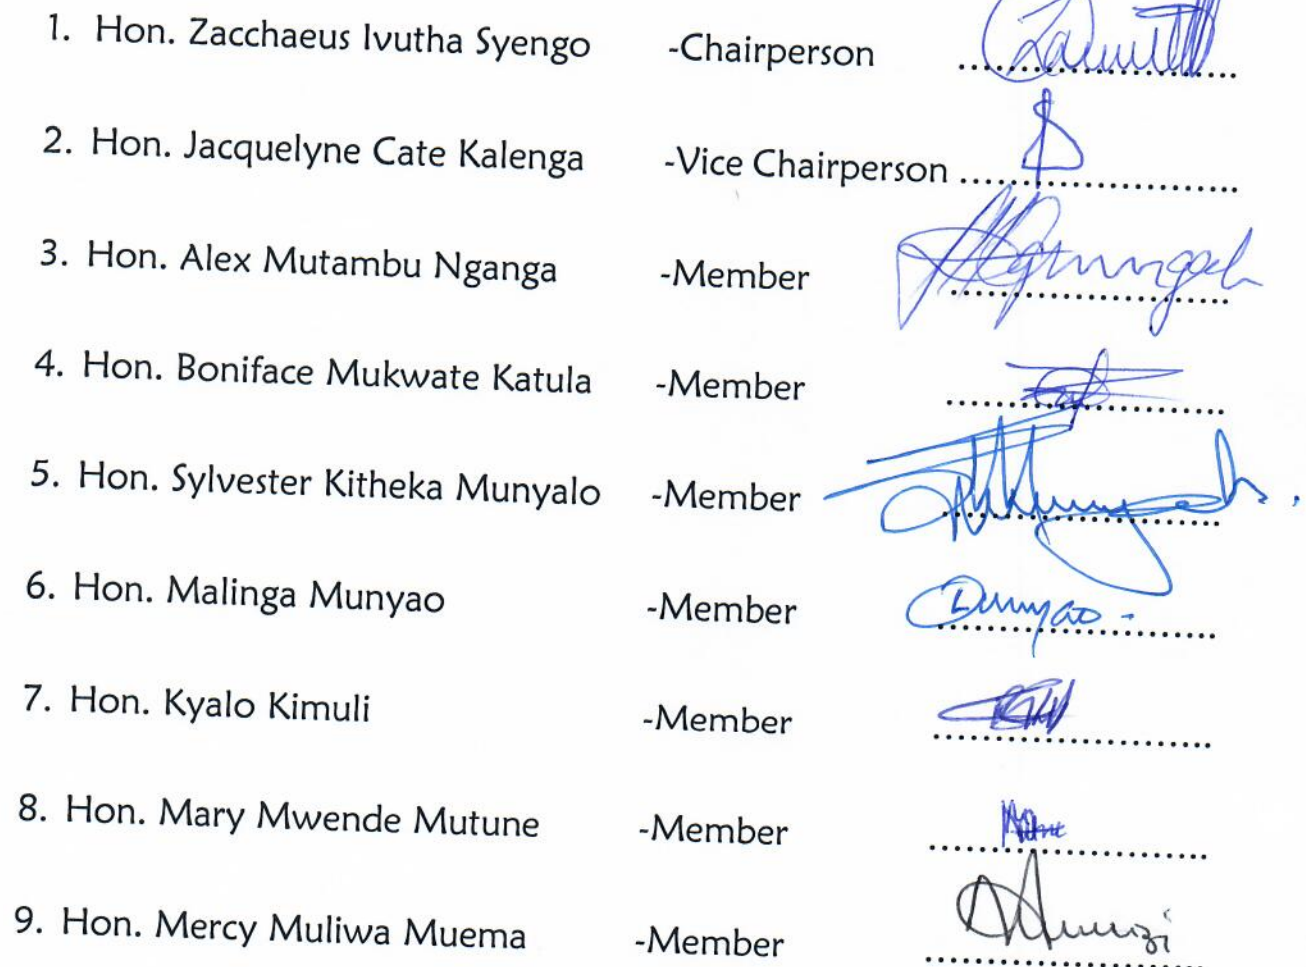 1. Hon. Zacchaeus Ivutha Syengo -Chairperson ....................
2. Hon. Jacquelyne Cate Kalenga -Vice Chairperson ....................
3. Hon. Alex Mutambu Nganga -Member ....................
4. Hon. Boniface Mukwate Katula -Member ....................
5. Hon. Sylvester Kitheka Munyalo -Member ....................
6. Hon. Malinga Munyao -Member ....................
7. Hon. Kyalo Kimuli -Member ....................
8. Hon. Mary Mwende Mutune -Member ....................
9. Hon. Mercy Muliwa Muema -Member ....................